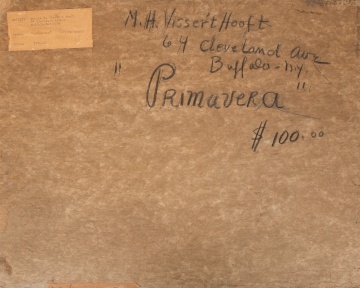 M. H. Vissert Hooft
64 Cleveland Ave
Buffalo - N.y.
" Primavera "
$ 100.00